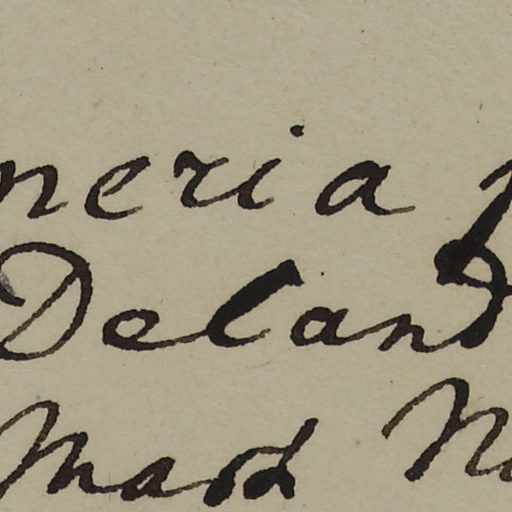 neria
Deland
Mark N